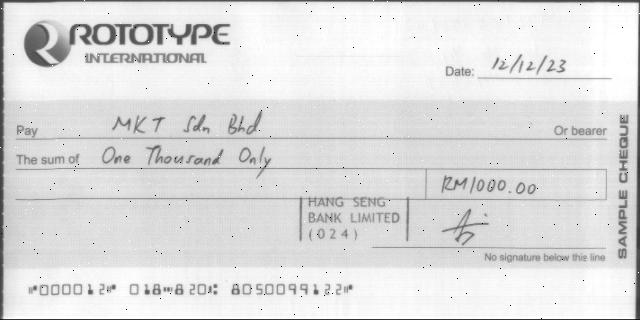 ROTOTYPE
INTERNATIONAL
Date: 12/12/23
Pay MKT Sdn Bhd Or bearer
The sum of One Thousand Only
RM1000.00
HANG SENG
BANK LIMITED
(024)
No signature below this line
SAMPLE CHEQUE
⑈000012⑈ 018⑉820⑆ 8050099122⑈